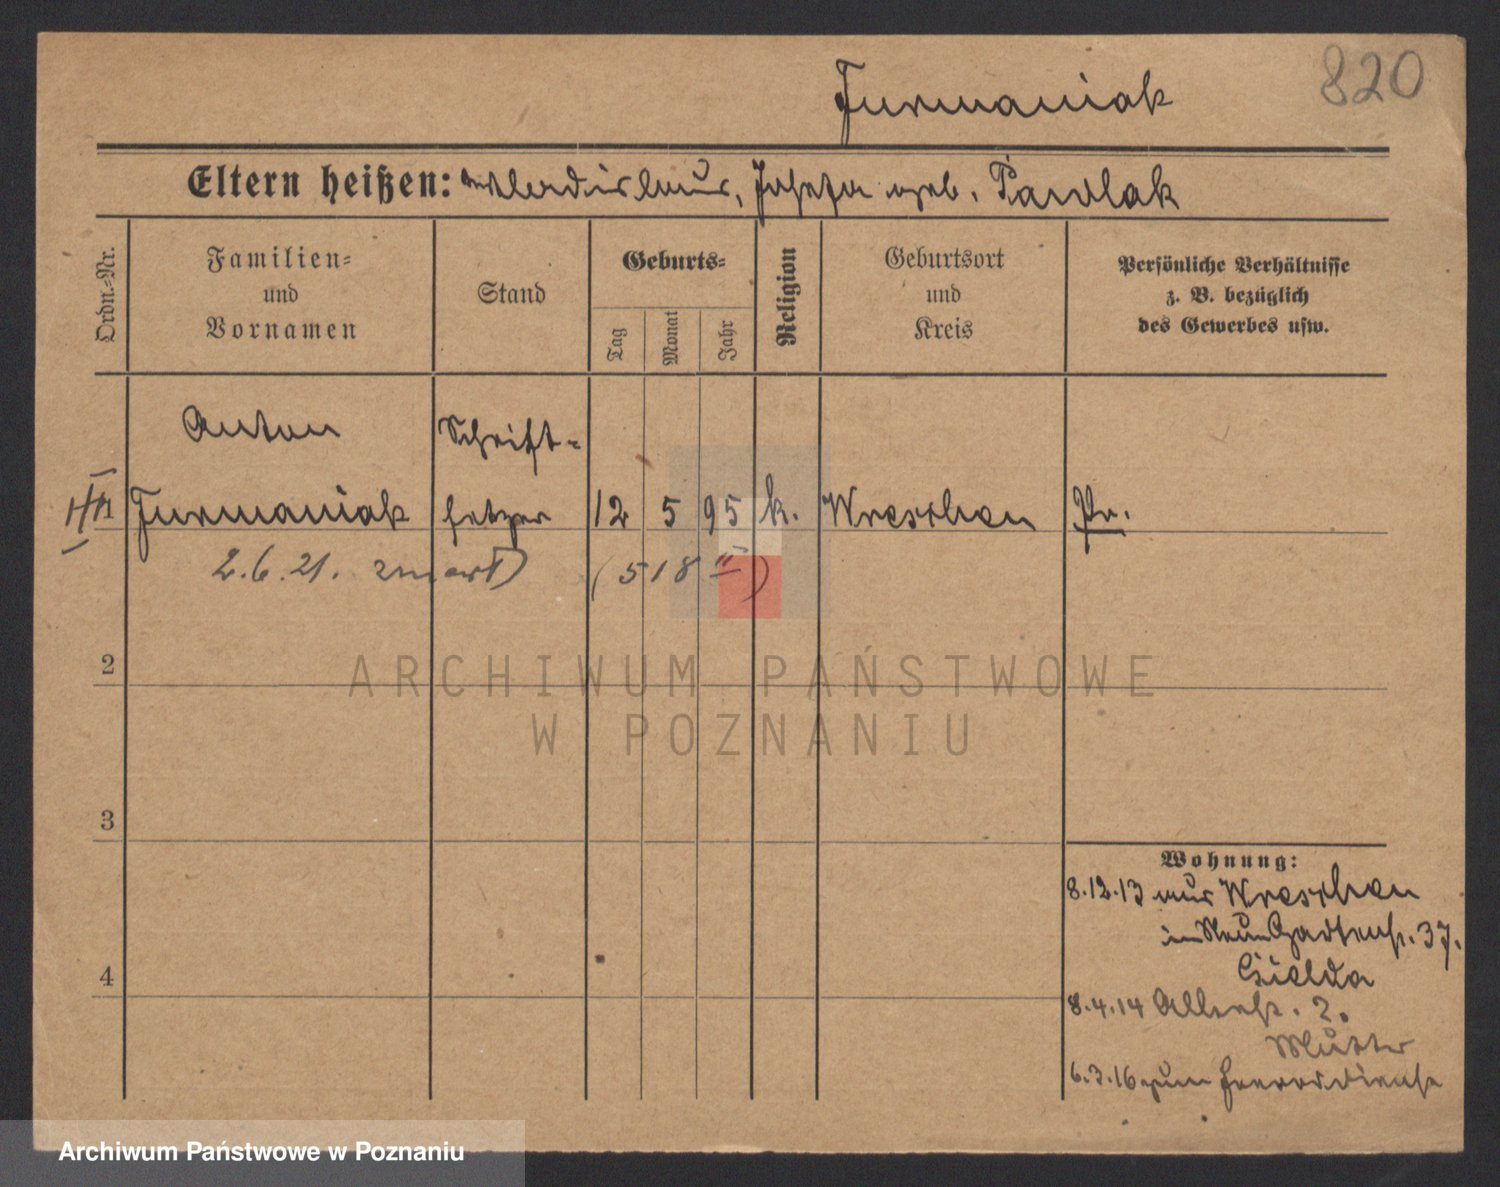 820
Furmaniak
Eltern heißen: Wladislaus, Josefa geb. Pawlak
Ordn.=Nr.
Familien=
und
Vornamen
Stand
Geburts=
Tag
Monat
Jahr
Religion
Geburtsort
und
Kreis
Persönliche Verhältnisse
z. B. bezüglich
des Gewerbes usw.
Anton Schrift-
1 Furmaniak setzer 12 5 95 k. Wreschen Pr.
2.6.21. zmarł (518 II)
2
3
4
Wohnung:
8.12.13 aus Wreschen
Gartenstr. 37.
8.4.14 2.
Mutter
6.3.16 zum Heeresdienst
ARCHIWUM PAŃSTWOWE
W POZNANIU
Archiwum Państwowe w Poznaniu